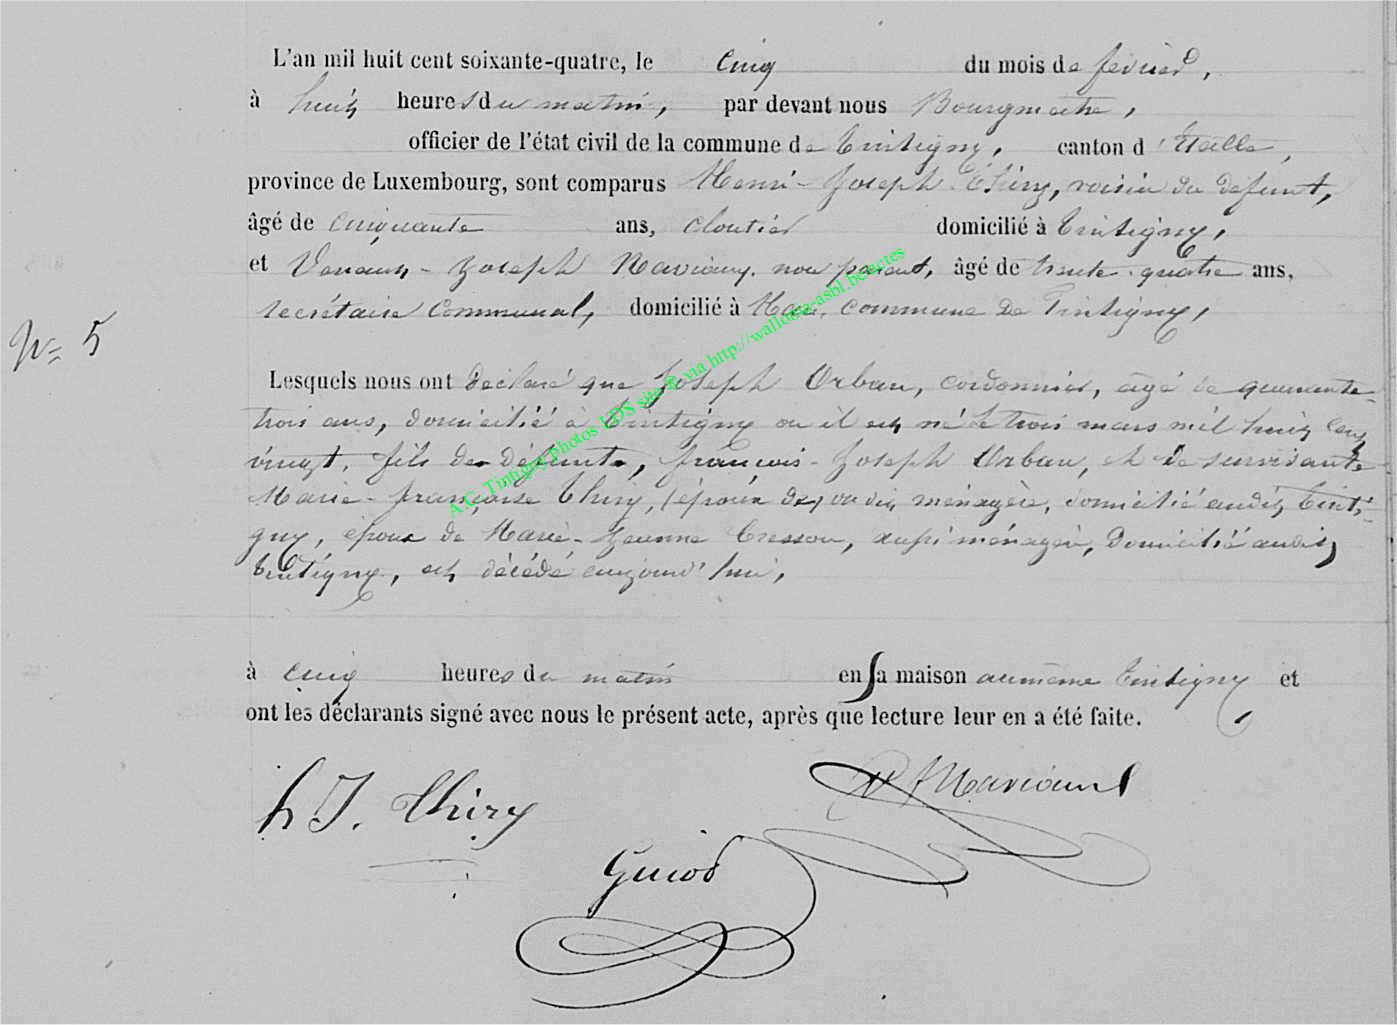 L'an mil huit cent soixante-quatre, le cinq du mois de février,
à huit heures du matin, par devant nous Bourgmestre,
officier de l'état civil de la commune de Tintigny, canton d'Etalle,
province de Luxembourg, sont comparus Henri-Joseph Thiry, voisin du défunt,
âgé de cinquante ans, cloutier domicilié à Tintigny,
et Joseph non parent, âgé de trente-quatre ans,
secrétaire communal, domicilié à Han, commune de Tintigny,
N= 5
Lesquels nous ont déclaré que Joseph Orban, cordonnier, âgé de quarante-
trois ans, domicilié à Tintigny où il est né le trois mars mil huit cent
vingt, fils de défunt, françois-Joseph Orban, et de survivante
Marie-françoise Thiry, ménagère, domicilié audit Tinti-
gny, époux de Marie-Jeanne Cresson, aussi ménagère, domicilié audit
Tintigny, est décédé aujourd'hui,
à cinq heures du matin en sa maison au même Tintigny et
ont les déclarants signé avec nous le présent acte, après que lecture leur en a été faite.
h J. Thiry
Guiot
A.C. Tintigny photos LDS site © via http://wallonia-asbl.be/actes